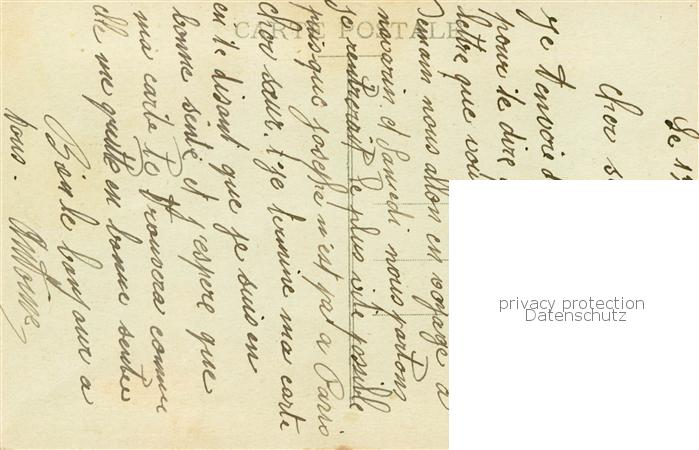 Le 19
cher s
Je t'envoie d
pour te dire
lettre que vou
Dinam nous allon en voyage a
navarin et Samedi nous partons
se rentrerait le plus vite possible
puisque josephe n'est pas a Paris
cher sœur. Je termine ma carte
en te disant que je suis en
bonne santé et j'espere que
ma carte te trouvera comme
elle me quitte en bonne sentée
Bien le bonjour a
tous. Antoine
CARTE POSTALE
privacy protection
Datenschutz